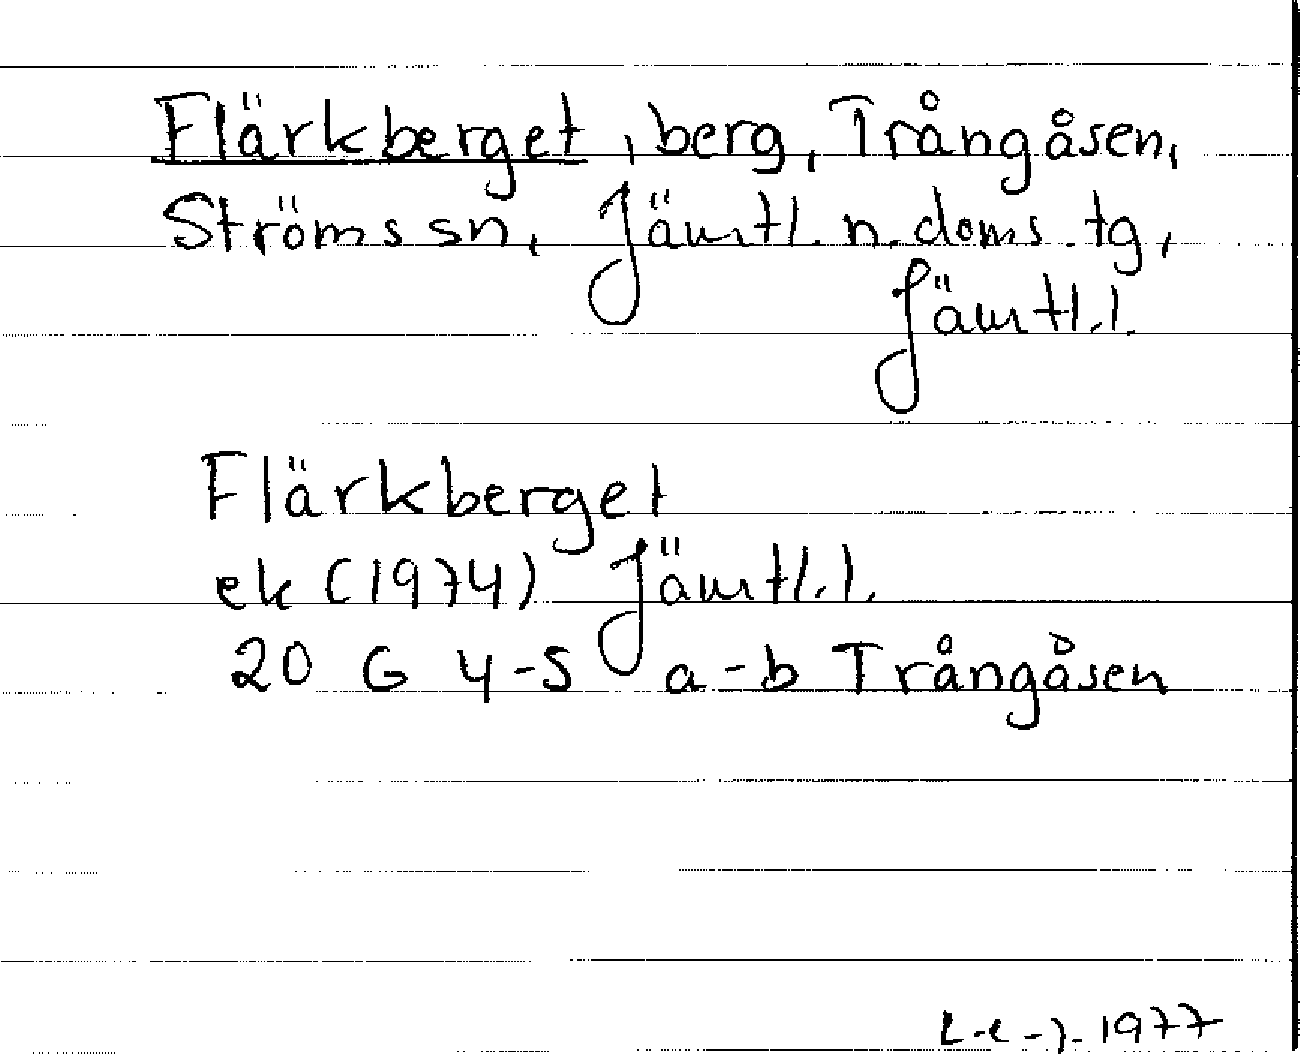 Flärkberget, berg, Trångåsen,
Ströms sn, Jämtl. n. doms. tg,
Jämtl. l.
Flärkberget
ek (1974) Jämtl. l.
20 G 4-5 a-b Trångåsen
1977